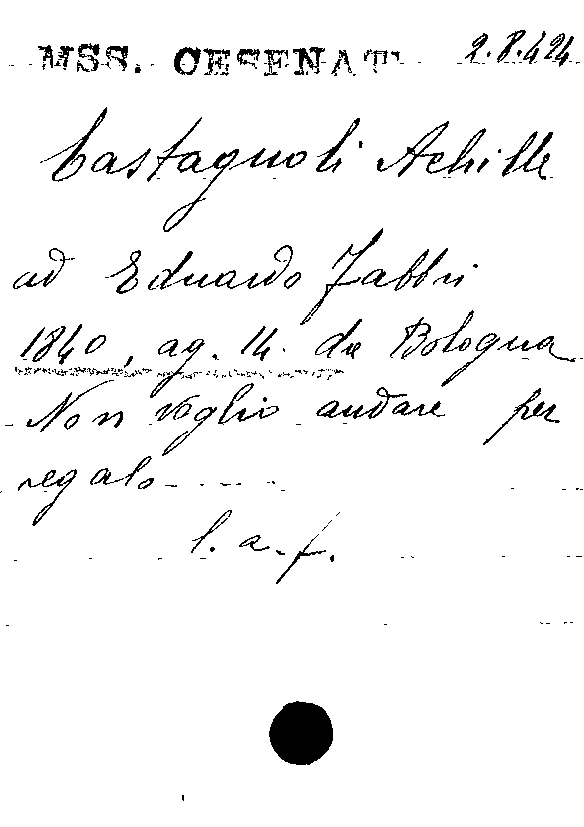 MSS. CESENATI 2.8.424
Castagnoli Achille
ad Eduardo Fabbri
1840, ag. 14. da Bologna
Non voglio andare per
regalo-----
l. a. f.